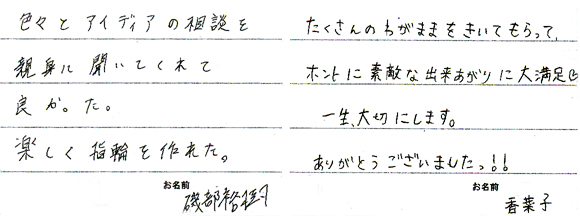 色々とアイディアの相談を
親身に聞いてくれて
良かった。
楽しく指輪を作れた。
お名前
磯部
たくさんのわがままをきいてもらって、
ホントに素敵な出来あがりに大満足
一生、大切にします。
ありがとうございましたっ!!
お名前
香葉子